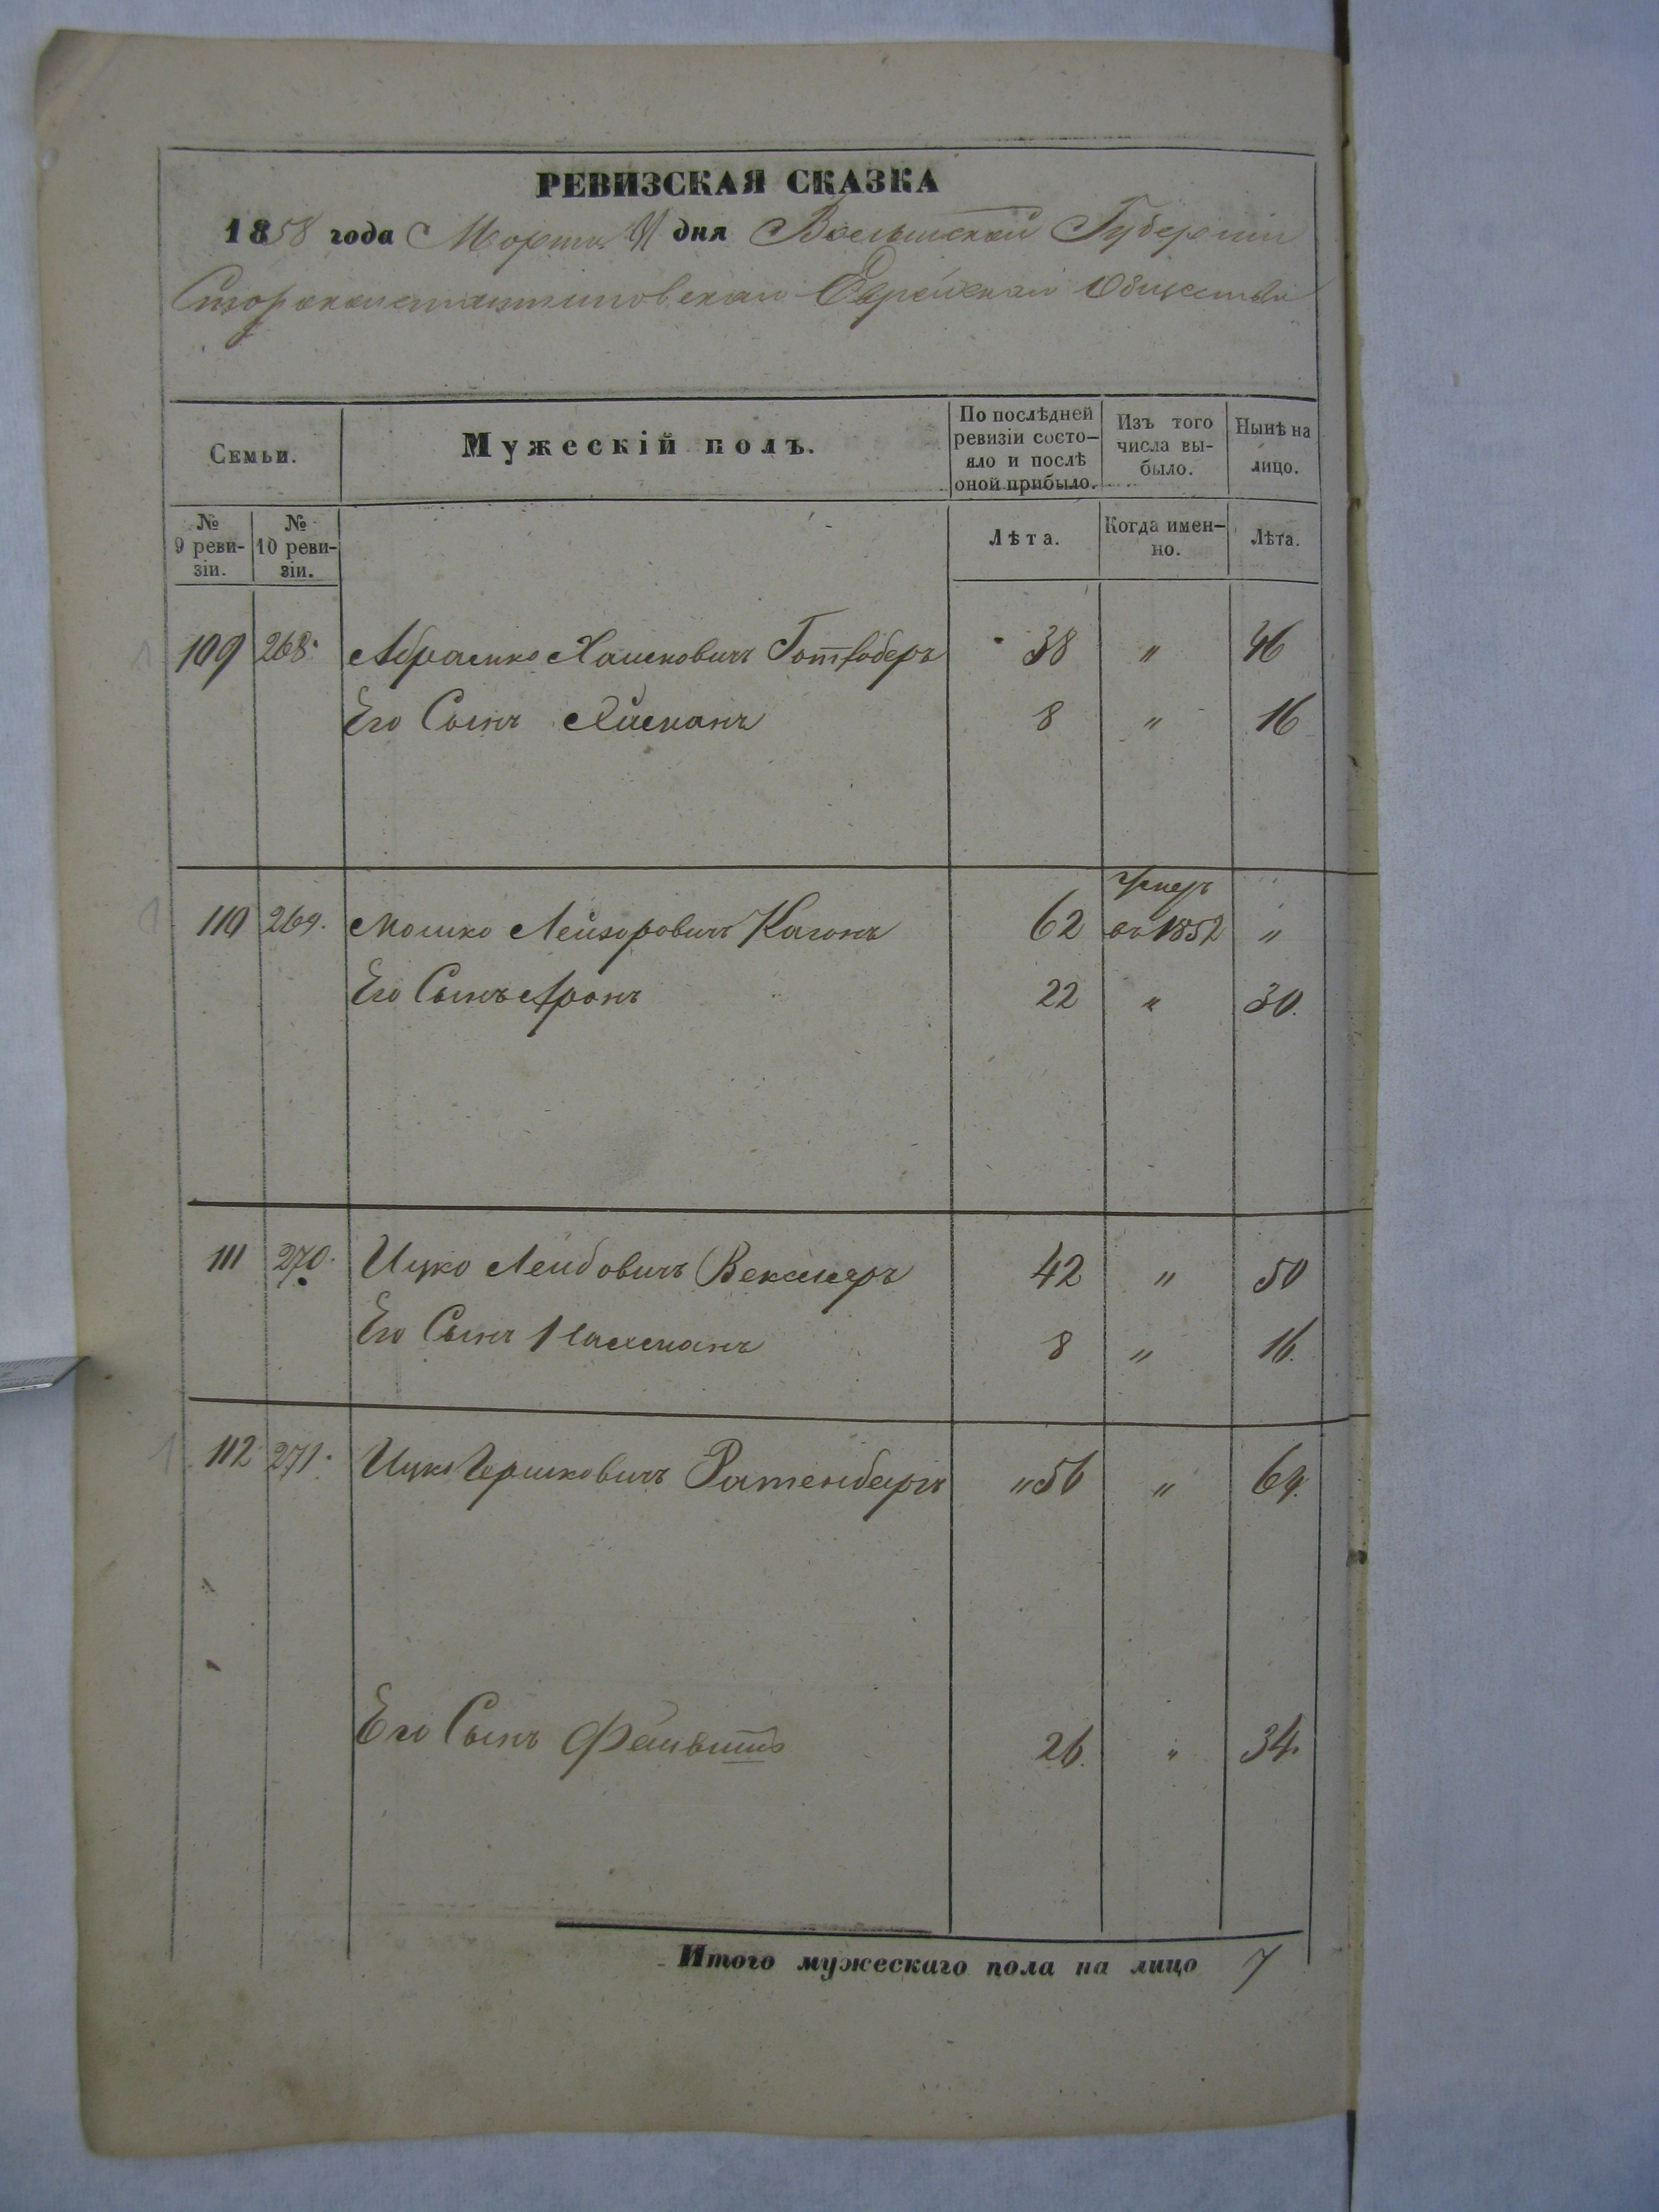 РЕВИЗСКАЯ СКАЗКА
1858 года Марта дня Волынской Губернии
Староконстантиновскаго Еврейскаго Общества
Семьи.
Мужескій полъ.
По послѣдней ревизіи состо-
яло и послѣ
оной прибыло.
Изъ того
числа вы-
было.
Нынѣ на
лицо.
№
9 реви-
зіи.
№
10 реви-
зіи.
Лѣта.
Когда имен-
но.
Лѣта.
109 268. Абрамко Хаимовичъ 38 " 46
Его Сынъ 8 " 16
умеръ
110 269. Мошко Лейзоровичъ Кагонъ 62 въ 1852 "
Его Сынъ Аронъ 22 " 30.
111 270. Ицко Лейбовичъ Векслеръ 42 " 50
Его Сынъ Нахманъ 8 " 16.
112 271. Ицко Гершковичъ Ратенбергъ " 56 " 64.
Его Сынъ 26. " 34.
Итого мужескаго пола на лицо 7